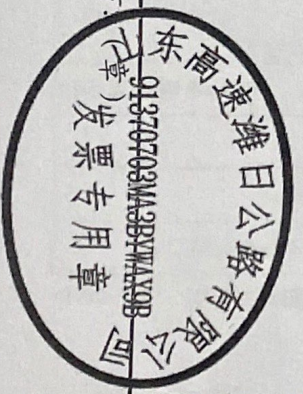 山东高速潍日公路有限公司
91370703MA3BYWAX9B
发票专用章
章）